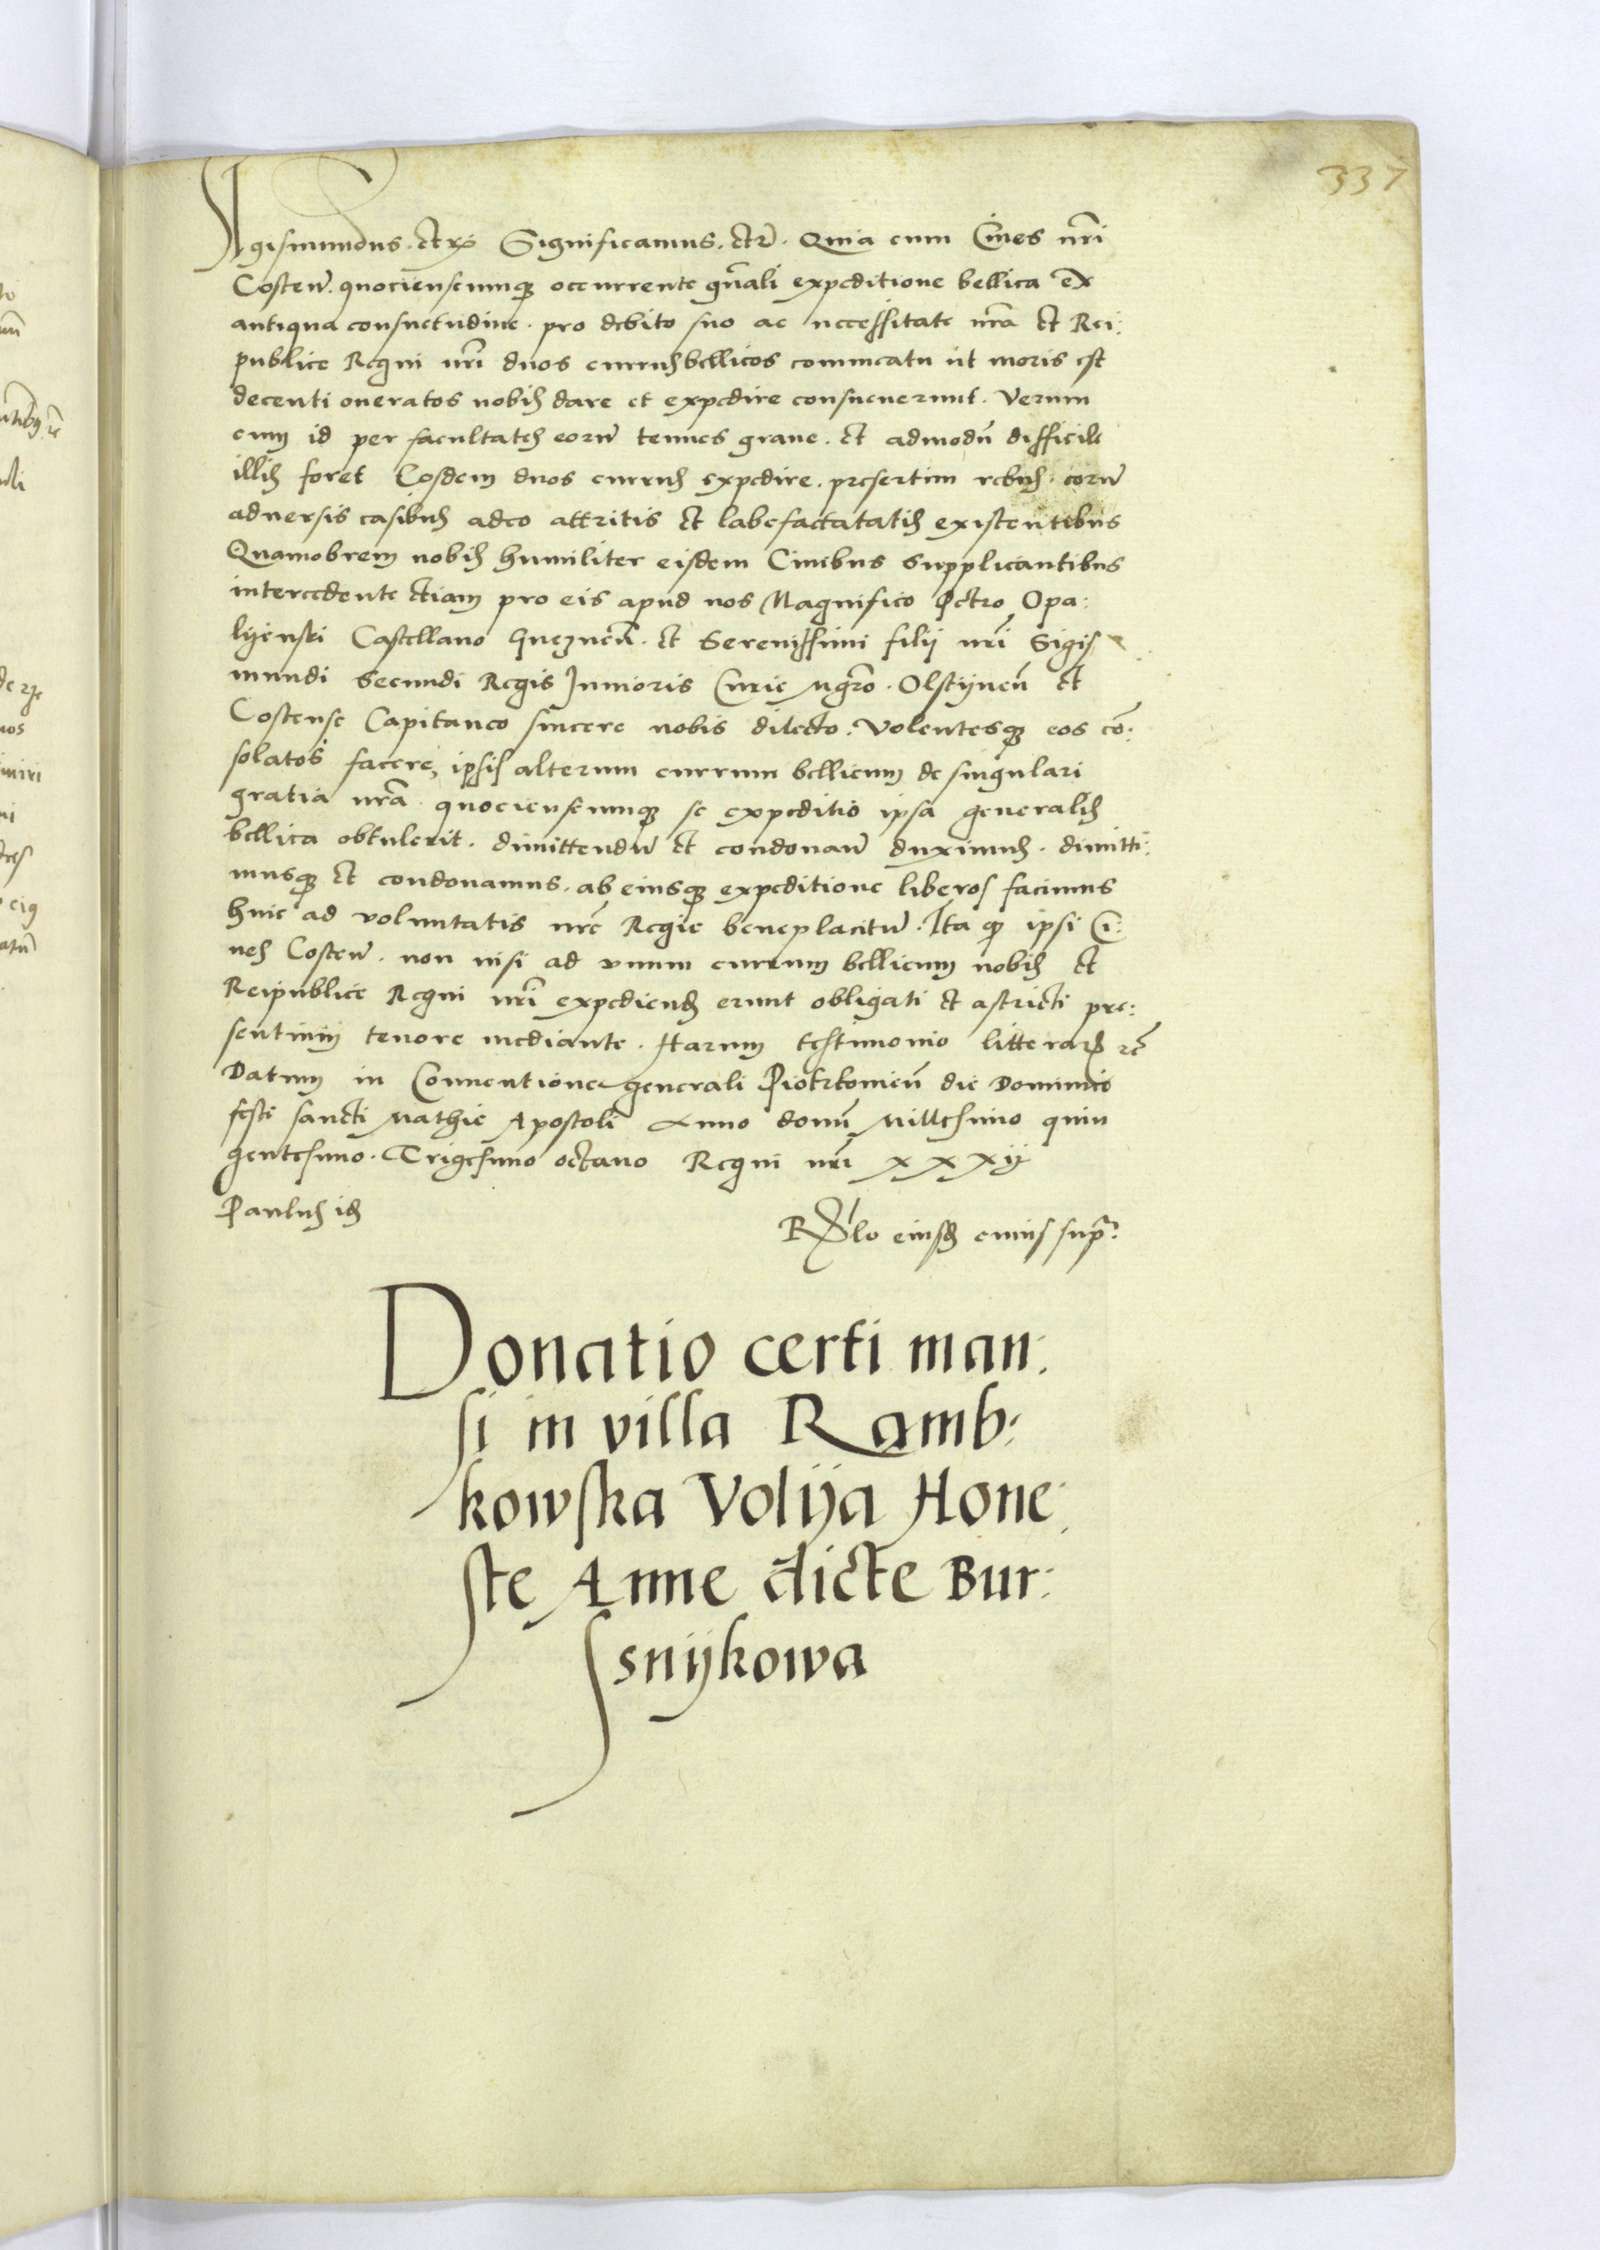 337
Sigismundus. etc. Significamus. etc. Quia cum Ciues nri
Costeñ. quocienscunque occurrente gnali expeditione bellica ex
antiqua consuetudine. pro debito suo ac necessitate nra et Rei:
publice Regni nri duos currus bellicos comeatu ut moris est
decenti oneratos nobis dare et expedire consueuerunt. Verum
cum id per facultates eorum tenues graue. et admodũ difficile
illis foret Eosdem duos currus expedire. presertim rebus eorum
aduersis casibus adeo attritis et labefactatatis existentibus
Quamobrem nobis humiliter eisdem Ciuibus supplicantibus
intercedente etiam pro eis apud nos Magnifico Petro Opa:
lijenski Castellano Gneznen. et Serenissimi filij nri Sigis
mundi Secundi Regis Junioris Curie Mgro. Olstijnen et
Costense Capitaneo sincere nobis dilecto. Volentesque eos co:
solatos facere, ipsis alterum currum bellicum de singulari
gratia nra quocienscunque se expeditio ipsa generalis
bellica obtulerit. dimittendũ et condonanũ duximus. dimitti:
musque et condonamus. ab eiusque expeditione liberos facimus
huic ad voluntatis nre Regie beneplacitũ. Ita quod ipsi Ci:
ues Costeñ. non nisi ad vnum currum bellicum nobis et
Reipublice Regni nri expediend erunt obligati et astricti pre:
sentium tenore mediante. Harum testimonio litterarum etc
Datum in Conuentione generali Piotrkouien die Dominico
festi sancti Mathie Apostoli Anno domi Millesimo quin
gentesimo. Trigesimo octauo Regni nri xxxij
Paulus
Rlo eiusdem cuius supra
Donatio certi man:
si in villa Ramb:
kowska Volija Hone:
ste Anne dicte Bur:
ssnijkowa